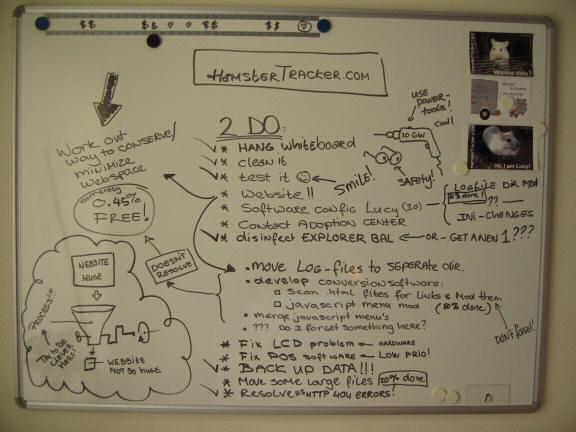 $$ $$ $$ $$
HamsterTracker.com
2 DO:
* HANG WHITEBOARD
* clean it
* test it
SMILE!
* Website !!
* Software config Lucy (3.0)
* Contact ADOPTION CENTER
* disinfect EXPLORER BAL ← OR - GET A NEW 1???
USE POWER-
TOOLS!
cool!
10 GW
SAFETY!
LOGFILE DIR MOD
??
INI-CHANGES
Wanna data?
Hi, I am Lucy!
Work out
way to conserve/
minimize
webspace
currently
0.45%
FREE!
DOESN'T
RESOLVE
• move LOG-files to SEPERATE dir.
• develop conversionsoftware:
□ Scan .html files for links & Mod them
□ javascript menu mod (80% done)
• merge javascript menu's
• ??? Do I forget something here?
DON'T forget!
* Fix LCD problem ← HARDWARE
* Fix POS software ← LOW PRIO!
* BACK UP DATA!!!
* Move some large files 20% done
* Resolve HTTP 404 ERRORS!
WEBSITE
HUGE
PROCESS
TRY TO BE
CLEVER
HERE!
WEBSITE
NOT SO HUGE